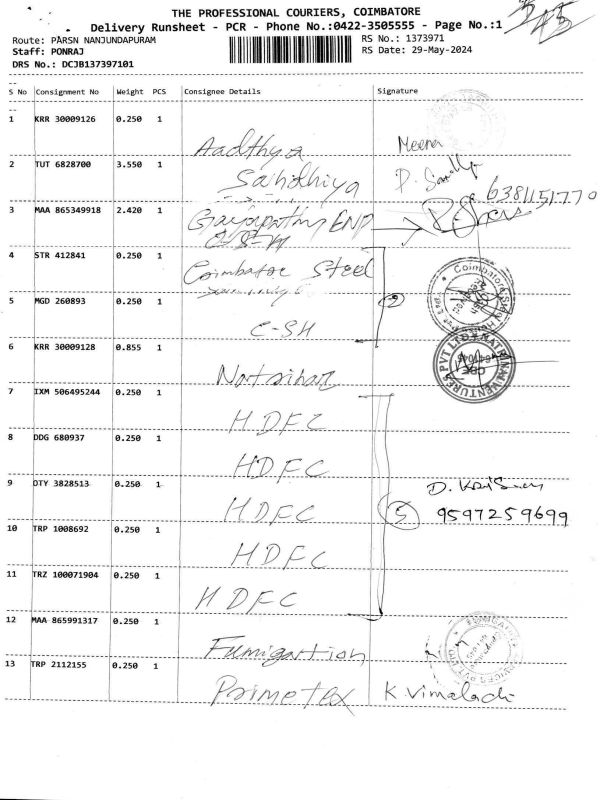 THE PROFESSIONAL COURIERS, COIMBATORE
Delivery Runsheet - PCR - Phone No.:0422-3505555 - Page No.:1
Route: PARSN NANJUNDAPURAM RS No.: 1373971
Staff: PONRAJ RS Date: 29-May-2024
DRS No.: DCJB137397101
S No Consignment No Weight PCS Consignee Details Signature
1 KRR 30009126 0.250 1 Aadthya Meena
2 TUT 6828700 3.550 1 Sahidhiya
6381151770
3 MAA 865349918 2.420 1 END
4 STR 412841 0.250 1 Coimbatoe Steel
5 MGD 260893 0.250 1 C-SH
6 KRR 30009128 0.855 1
7 IXM 506495244 0.250 1 HDFC
8 DDG 680937 0.250 1 HDFC
9 OTY 3828513 0.250 1 HDFC 5 9597259699
10 TRP 1008692 0.250 1 HDFC
11 TRZ 100071904 0.250 1 HDFC
12 MAA 865991317 0.250 1 Fumigartion
13 TRP 2112155 0.250 1 Primetex K Vimaladi